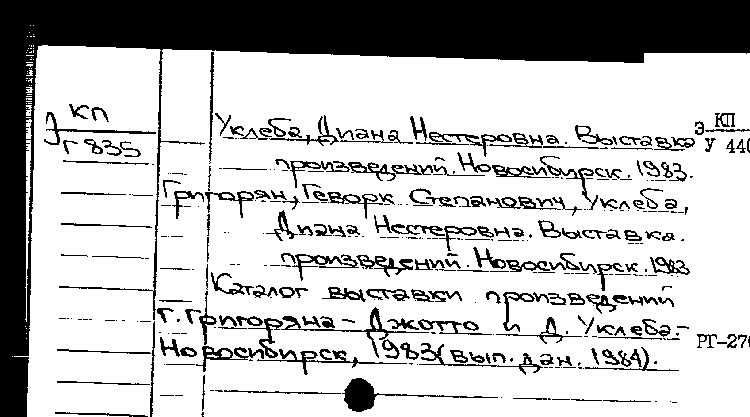 КП
Э Г 835
Уклеба, Диана Нестеровна. Выставка
произведений. Новосибирск. 1983.
Григорян, Геворк Степанович, Уклеба,
Диана Нестеровна. Выставка.
произведений. Новосибирск. 1983
Каталог выставки произведений
Г. Григоряна - Джотто и Д. Уклеба.-
Новосибирск, 1983 (вып. дан. 1984).
Э КП
У 440
РГ-270